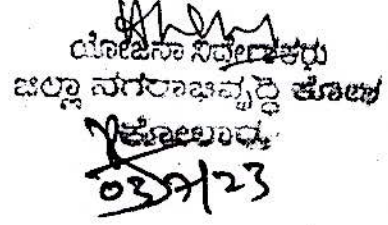 ಯೋಜನಾ ನಿರ್ದೇಶಕರು
ಜಿಲ್ಲಾ ನಗರಾಭಿವೃದ್ಧಿ ಕೋಶ
ಕೋಲಾರ
03/7/23